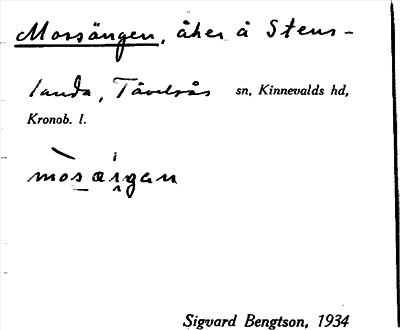 Mossängen, åker å Stens-
landa, Tävelsås sn, Kinnevalds hd,
Kronob. l.
Sigvard Bengtson, 1934